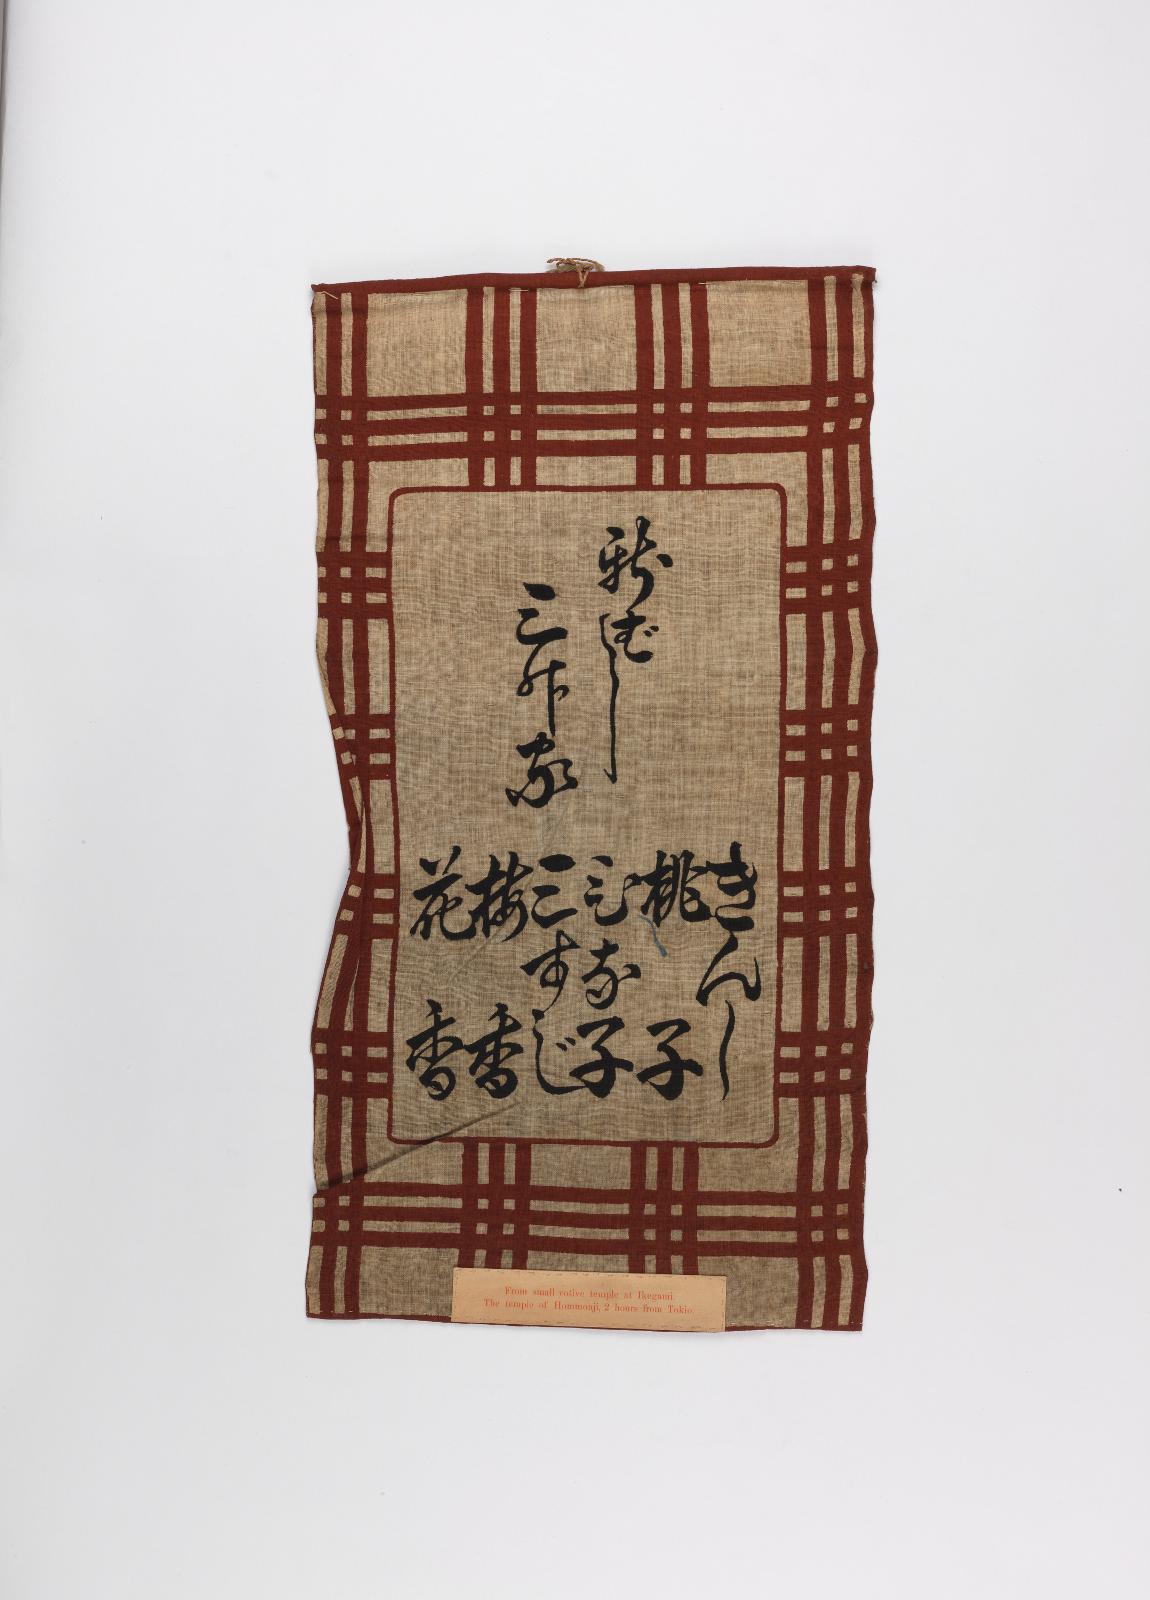 新むし
三升家
きんし
桃子
三すじ
梅香
花香
From small votive temple at Ikegami.
The temple of Hommonji, 2 hours from Tokio.